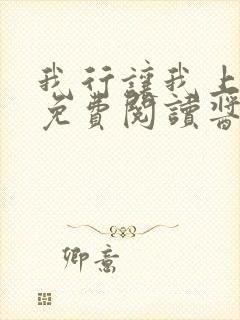 我行讓我上
免費閱讀醬
卿意